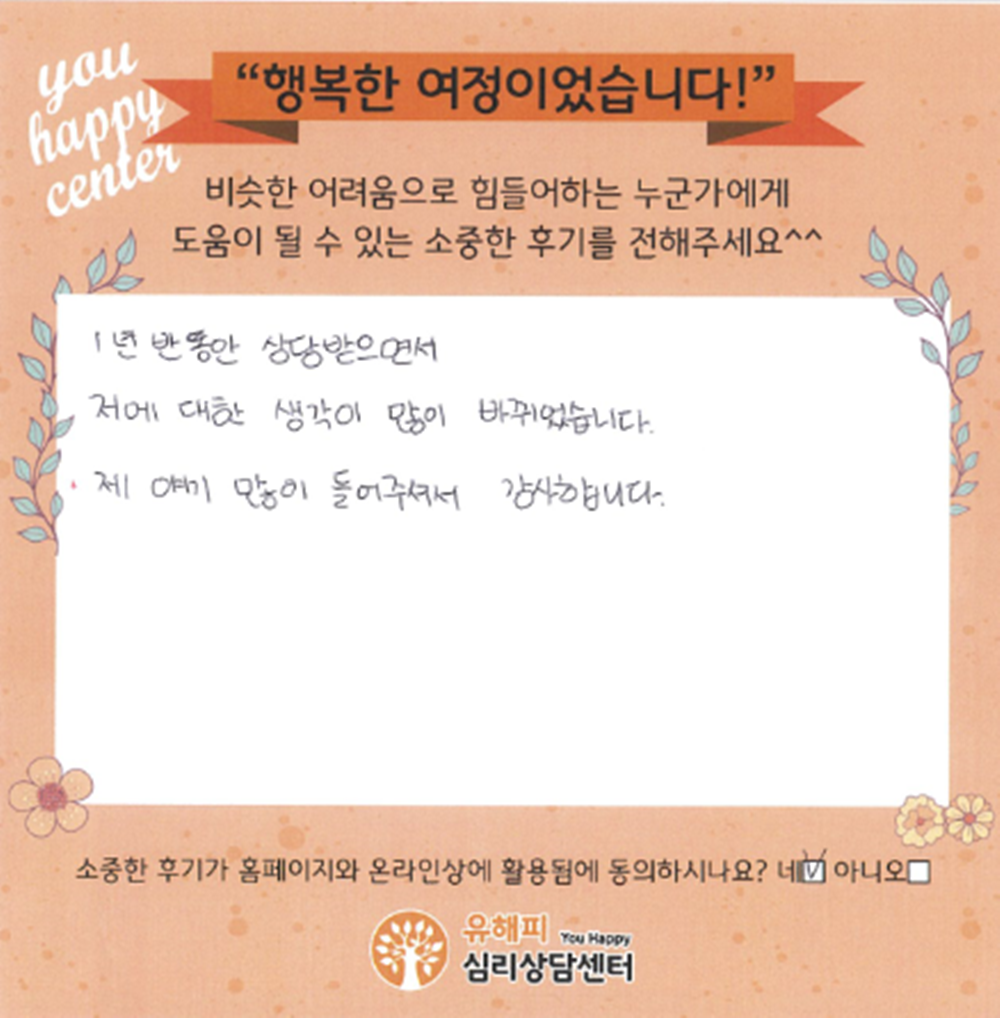 you
happy
center
“행복한 여정이었습니다!”
비슷한 어려움으로 힘들어하는 누군가에게
도움이 될 수 있는 소중한 후기를 전해주세요^^
1년 반 동안 상담받으면서
저에 대한 생각이 많이 바뀌었습니다.
제 얘기 많이 들어주셔서 감사합니다.
소중한 후기가 홈페이지와 온라인상에 활용됨에 동의하시나요? 네☑ 아니오☐
유해피 You Happy
심리상담센터